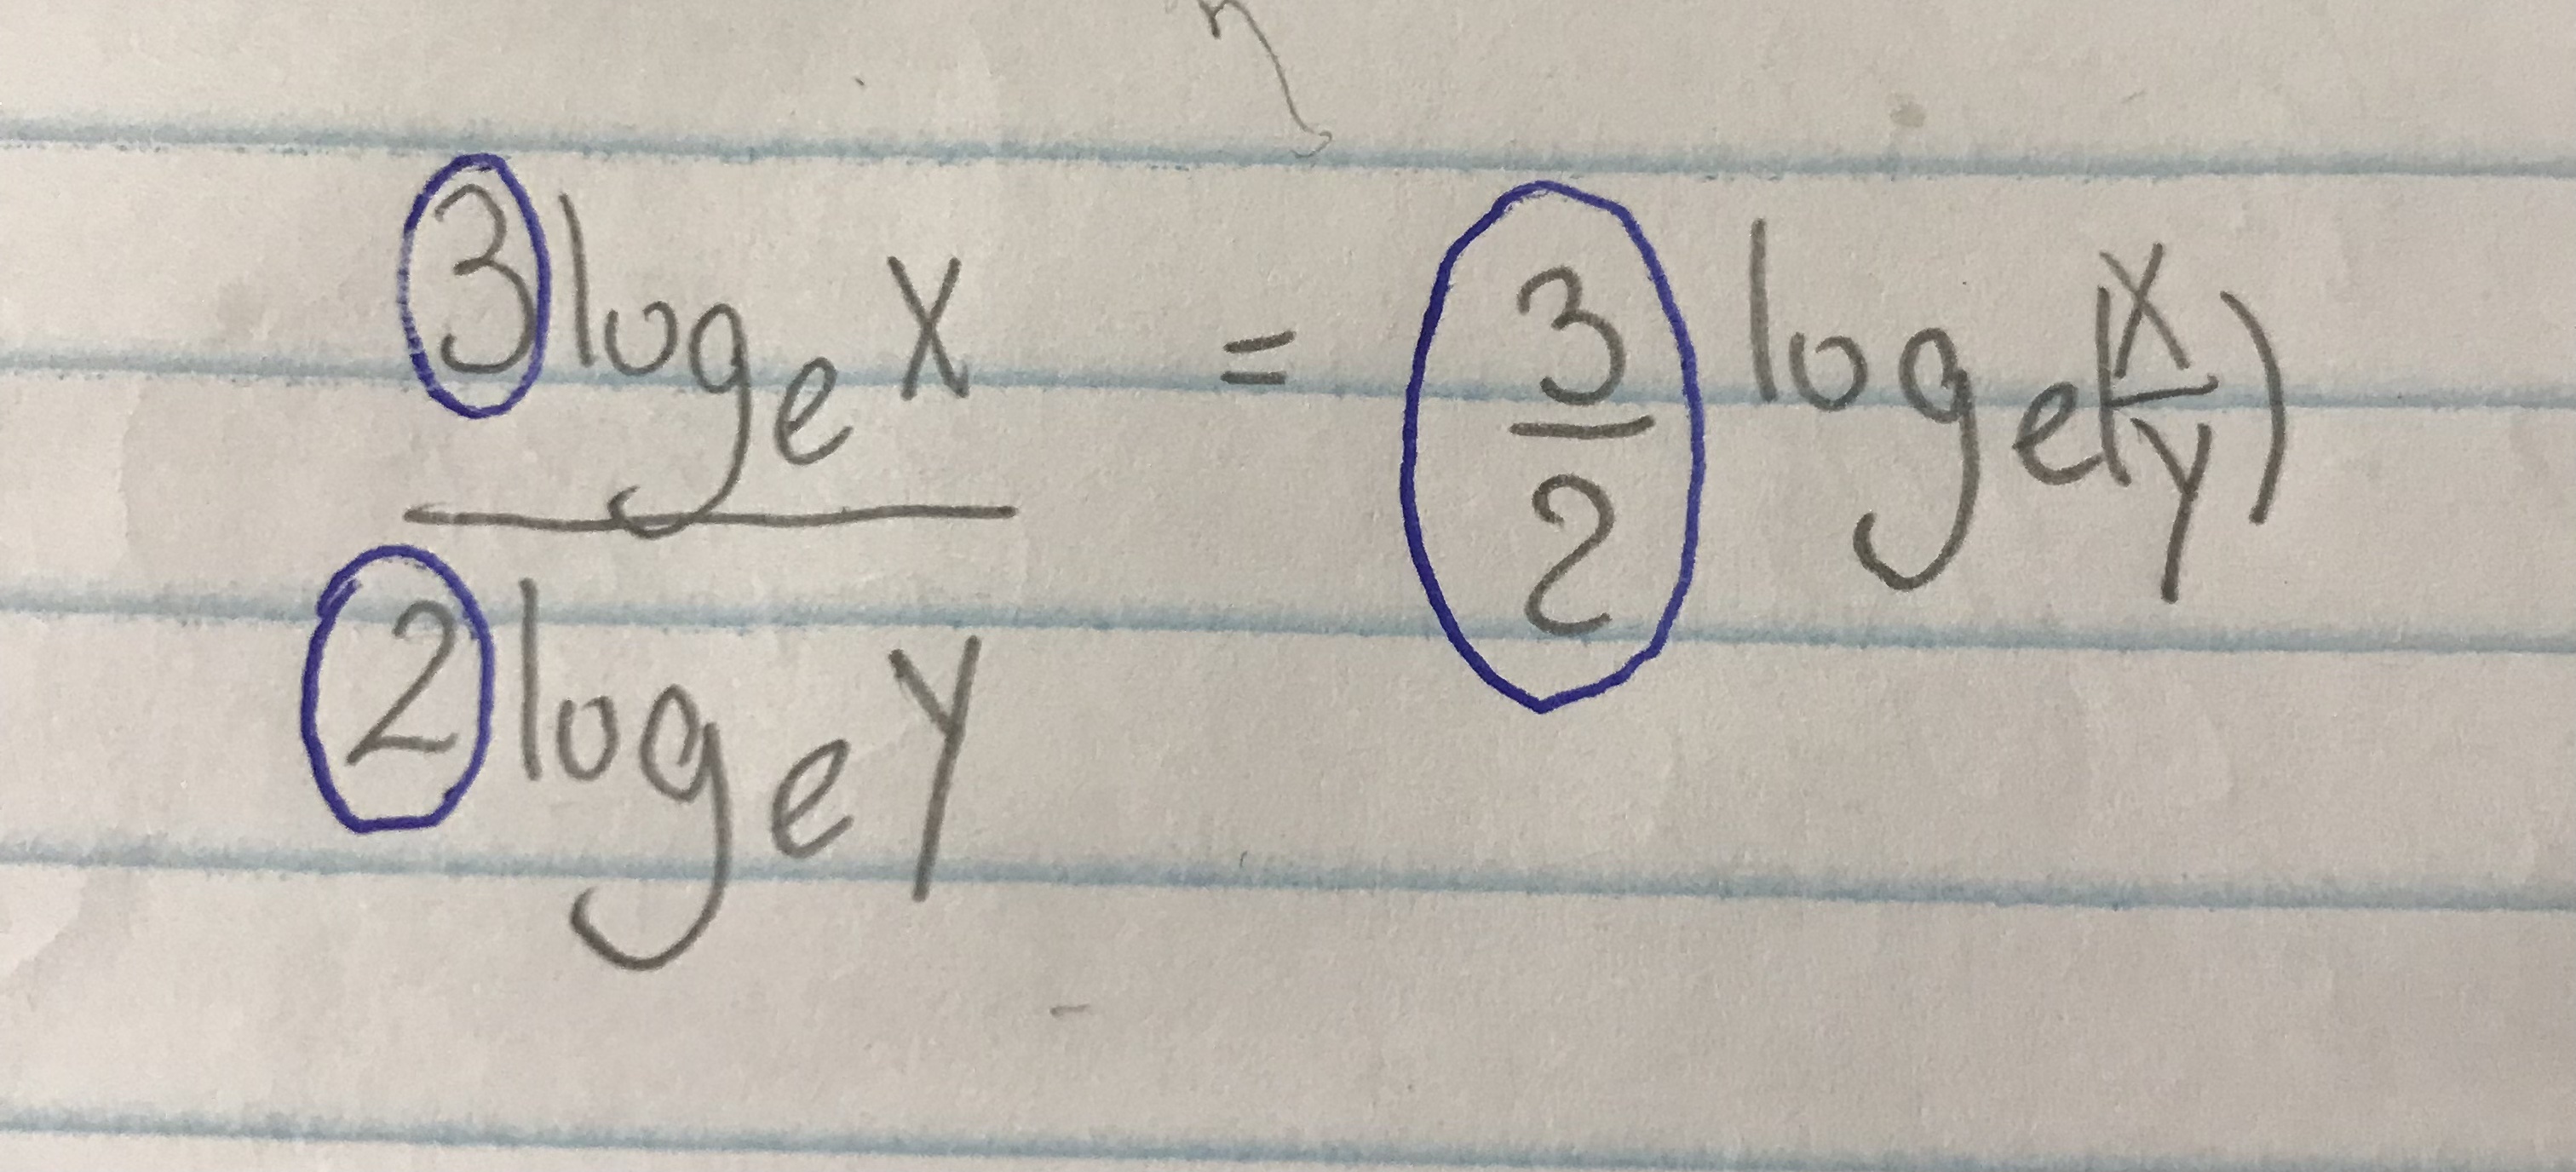 3 logₑ x / 2 logₑ y = 3/2 logₑ(x/y)